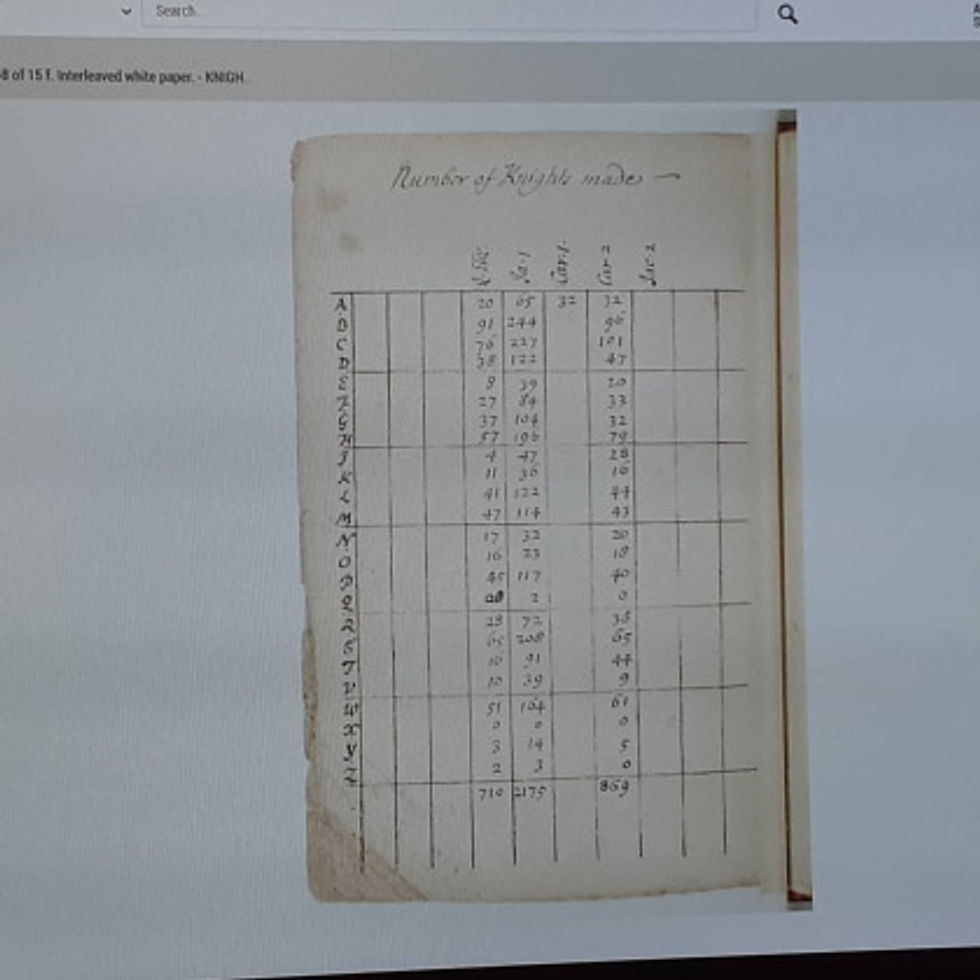 Search
8 of 15 f. Interleaved white paper. - KNIGH
Number of Knights made
Q. Eliz. Ja. 1 Car. 1. Car. 2 Jac. 2
A 20 65 32 32
B 91 244 96
C 76 227 101
D 38 122 47
E 8 39 20
F 27 84 33
G 37 104 32
H 57 196 79
J 4 47 28
K 11 36 16
L 41 122 44
M 47 114 43
N 17 32 20
O 16 23 18
P 45 117 40
Q 2 0
R 28 72 36
S 65 208 65
T 10 91 44
V 10 39 9
W 51 164 61
X 0 0 0
Y 3 14 5
Z 2 3 0
710 2175 869